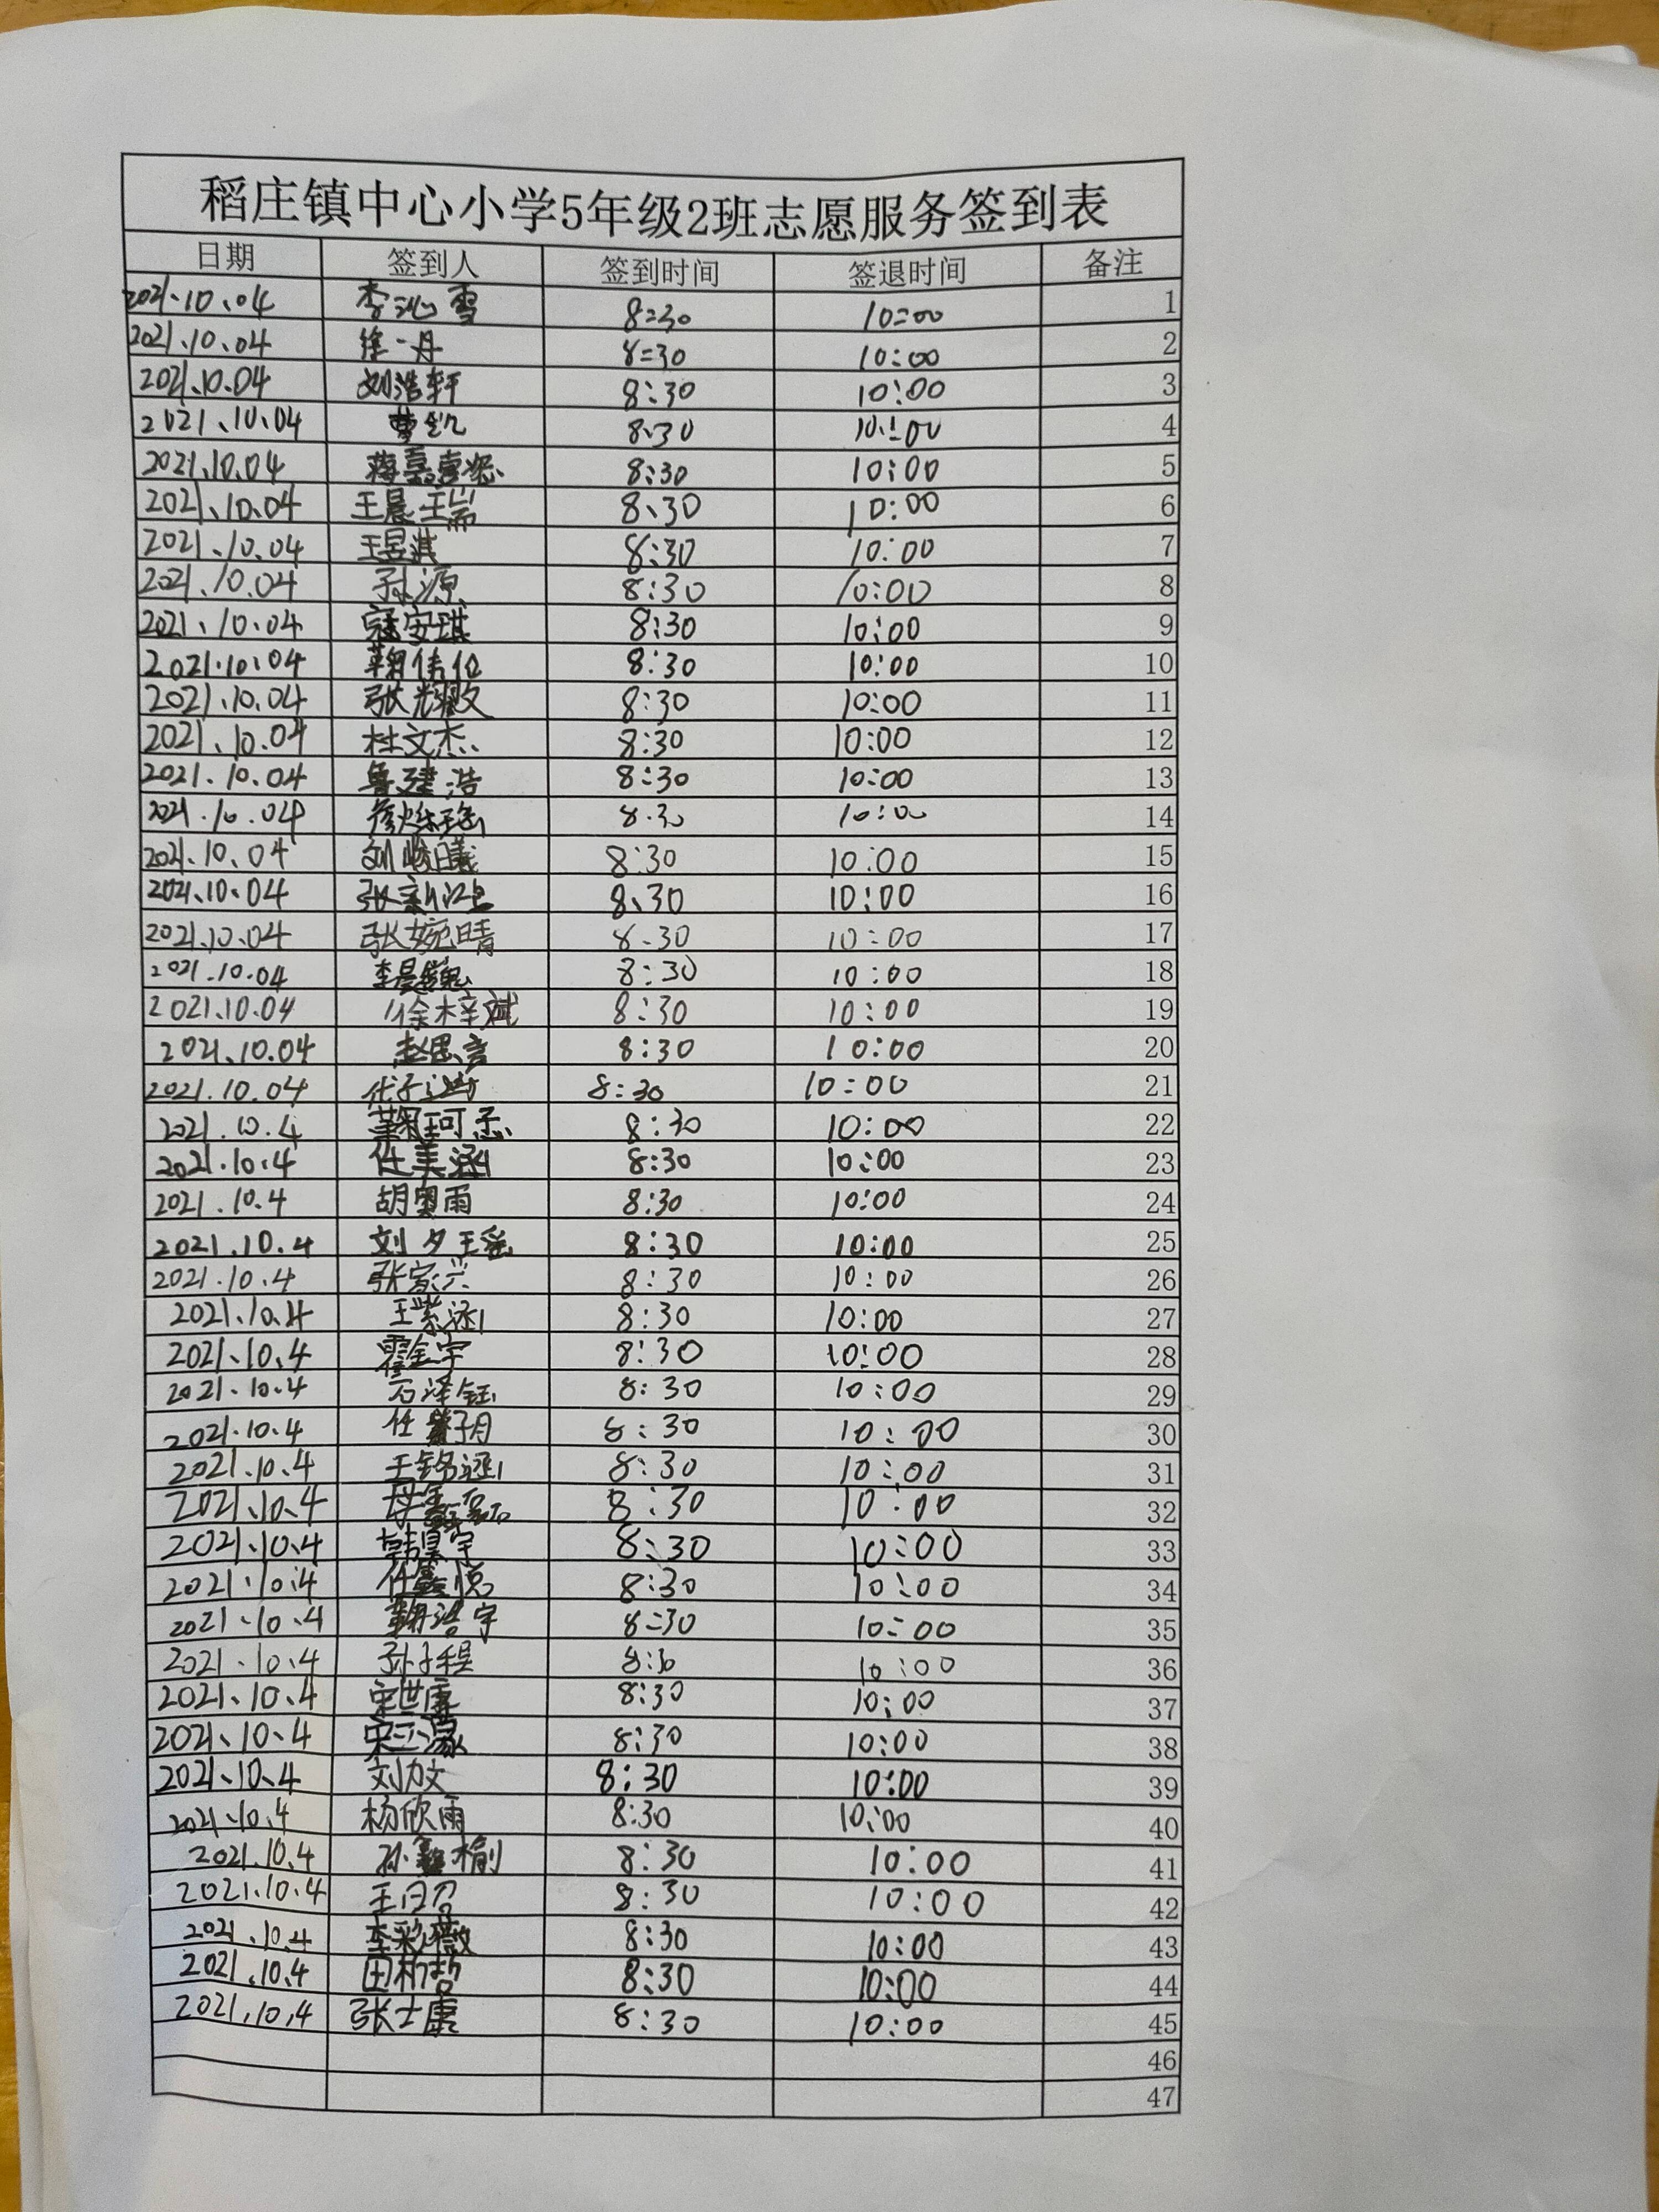 稻庄镇中心小学5年级2班志愿服务签到表
日期 签到人 签到时间 签退时间 备注
2021.10.04 李沁雪 8:30 10:00 1
2021.10.04 徐一丹 8:30 10:00 2
2021.10.04 刘浩轩 8:30 10:00 3
2021.10.04 曹凯 8:30 10:00 4
2021.10.04 蒋嘉熹 8:30 10:00 5
2021.10.04 王晨瑞 8:30 10:00 6
2021.10.04 王昱淇 8:30 10:00 7
2021.10.04 孙源 8:30 10:00 8
2021.10.04 安琪 8:30 10:00 9
2021.10.04 鞠伟 8:30 10:00 10
2021.10.04 张耀文 8:30 10:00 11
2021.10.04 杜文杰 8:30 10:00 12
2021.10.04 鲁建浩 8:30 10:00 13
2021.10.04 8:30 10:00 14
2021.10.04 刘峻曦 8:30 10:00 15
2021.10.04 张新 8:30 10:00 16
2021.10.04 张婉晴 8:30 10:00 17
2021.10.04 李晨 8:30 10:00 18
2021.10.04 徐梓斌 8:30 10:00 19
2021.10.04 赵思言 8:30 10:00 20
2021.10.04 代子 8:30 10:00 21
2021.10.4 鞠珂 8:30 10:00 22
2021.10.4 任美涵 8:30 10:00 23
2021.10.4 胡奥雨 8:30 10:00 24
2021.10.4 刘夕瑶 8:30 10:00 25
2021.10.4 张家兴 8:30 10:00 26
2021.10.4 王紫涵 8:30 10:00 27
2021.10.4 霍金宇 8:30 10:00 28
2021.10.4 石泽钰 8:30 10:00 29
2021.10.4 任子月 8:30 10:00 30
2021.10.4 王铭涵 8:30 10:00 31
2021.10.4 8:30 10:00 32
2021.10.4 韩昊宇 8:30 10:00 33
2021.10.4 任鑫悦 8:30 10:00 34
2021.10.4 鞠浩宇 8:30 10:00 35
2021.10.4 孙子程 8:30 10:00 36
2021.10.4 宋世康 8:30 10:00 37
2021.10.4 宋玉 8:30 10:00 38
2021.10.4 刘放 8:30 10:00 39
2021.10.4 杨欣雨 8:30 10:00 40
2021.10.4 孙鑫榆 8:30 10:00 41
2021.10.4 王 8:30 10:00 42
2021.10.4 李彩薇 8:30 10:00 43
2021.10.4 田柯哲 8:30 10:00 44
2021.10.4 张士康 8:30 10:00 45
46
47